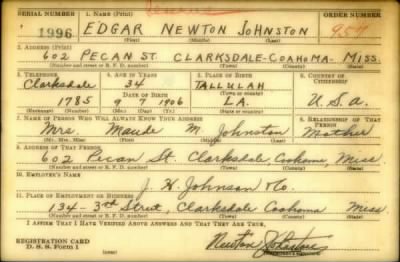 SERIAL NUMBER 1. NAME (Print) ORDER NUMBER
1996 EDGAR NEWTON JOHNSTON 954
(First) (Middle) (Last)
2. ADDRESS (Print)
602 PECAN ST. CLARKSDALE-COAHOMA-MISS.
(Number and street or R. F. D. number) (Town) (County) (State)
3. TELEPHONE 4. AGE IN YEARS 5. PLACE OF BIRTH 6. COUNTRY OF CITIZENSHIP
Clarksdale 34 TALLULAH
DATE OF BIRTH (Town or county)
1785 9 7 1906 LA. U.S.A.
(Exchange) (Number) (Mo.) (Day) (Yr.) (State or country)
7. NAME OF PERSON WHO WILL ALWAYS KNOW YOUR ADDRESS 8. RELATIONSHIP OF THAT PERSON
Mrs. Maude M. Johnston Mother
(Mr., Mrs., Miss) (First) (Middle) (Last)
9. ADDRESS OF THAT PERSON
602 Pecan St. Clarksdale Coahoma, Miss
(Number and street or R. F. D. number) (Town) (County) (State)
10. EMPLOYER'S NAME
J. H. Johnson & Co.
11. PLACE OF EMPLOYMENT OR BUSINESS
134-3rd Street, Clarksdale Coahoma Miss.
(Number and street or R. F. D. number) (Town) (County) (State)
I AFFIRM THAT I HAVE VERIFIED ABOVE ANSWERS AND THAT THEY ARE TRUE.
REGISTRATION CARD
D. S. S. Form 1
Newton Johnston